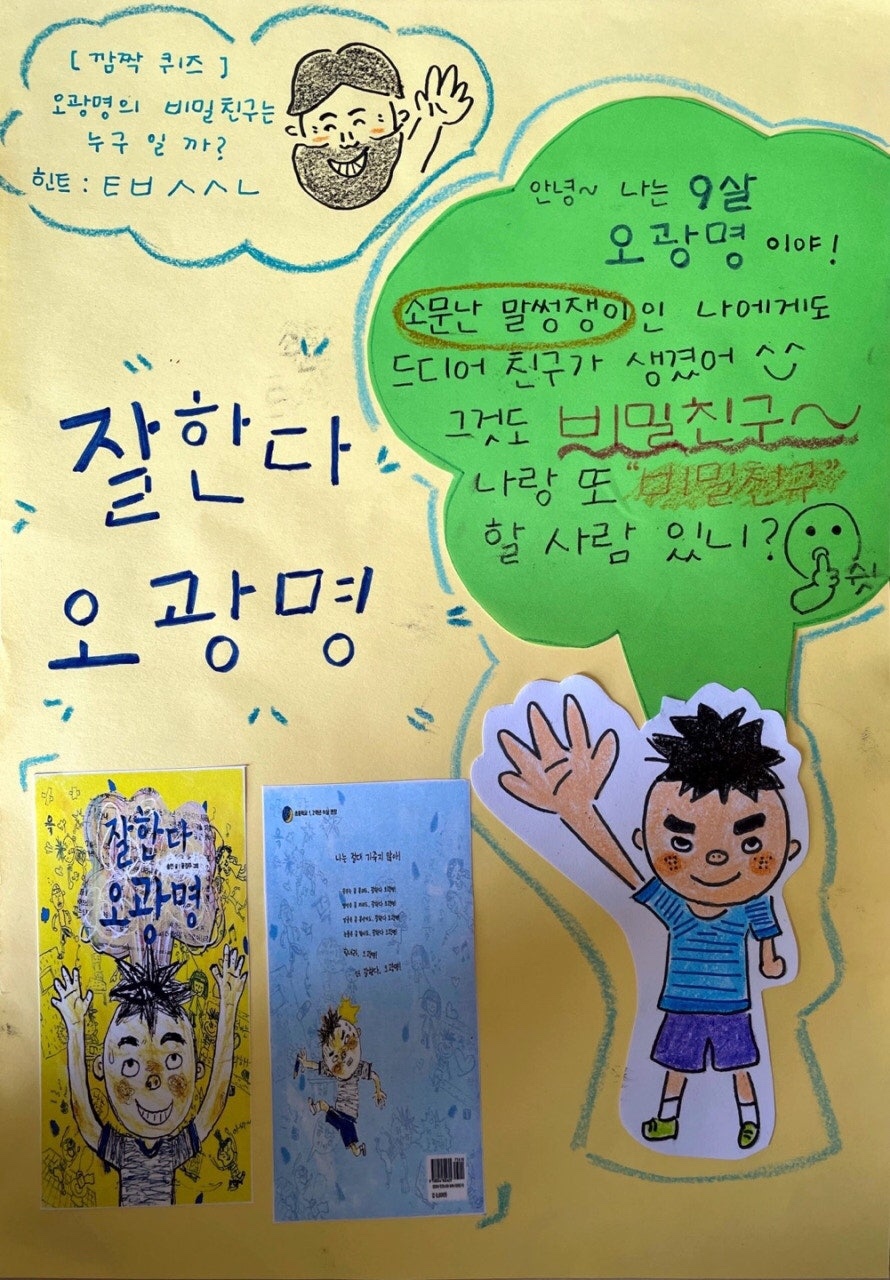 [ 깜짝 퀴즈 ]
오광명의 비밀친구는
누구 일 까?
힌트 : ㅌㅂㅅㅅㄴ
안녕~ 나는 9살
오광명 이야!
소문난 말썽쟁이인 나에게도
드디어 친구가 생겼어
그것도 비밀친구~
나랑 또 "비밀친구"
할 사람 있니?
쉿
잘한다
오광명
잘한다
오광명
나는 절대 기죽지 않아!